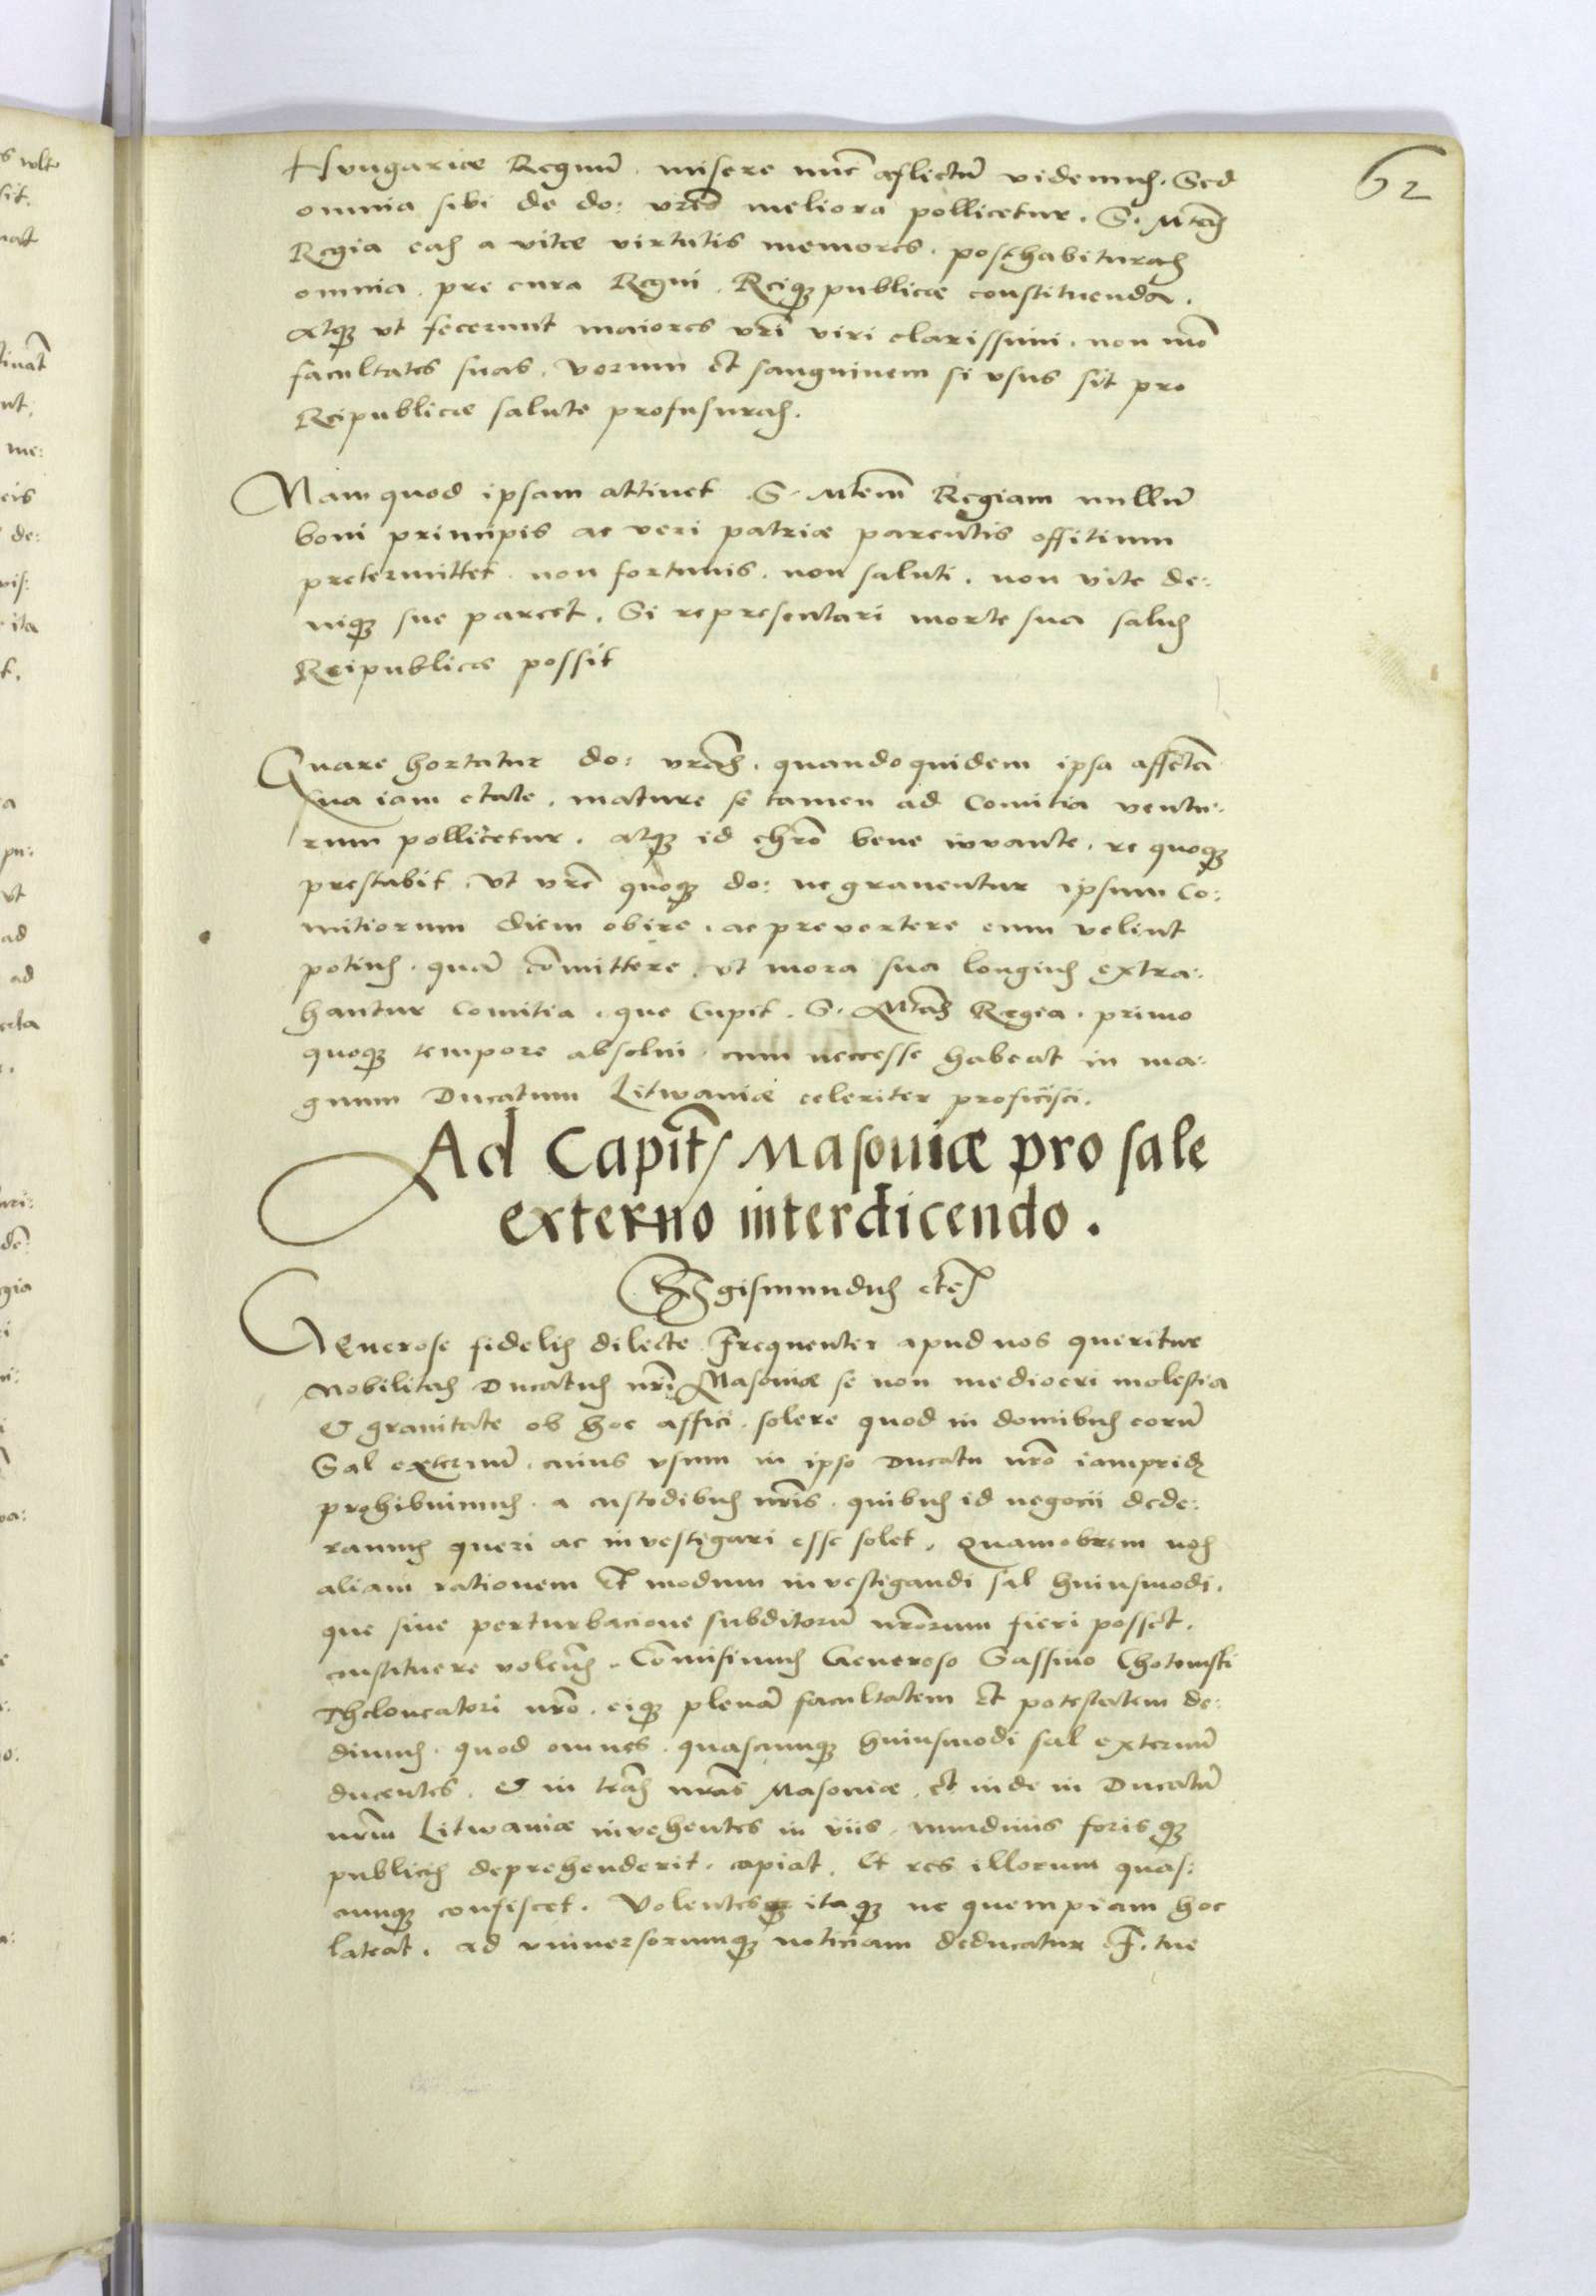 62
Hungariae Regnũ misere nũc aflictũ videmus. Sed
omnia sibi de do: vr̃is meliora pollicetur. S. Mt̃as
Regia eas avitae virtutis memores. posthabituras
omnia. pre cura Regni. Reiqȝ publicae constituenda.
atqȝ vt fecerunt maiores vr̃i viri clarissimi. non mõ
facultates suas. verum et sanguinem si vsus sit pro
Reipublicae salute profusuras.
Nam quod ipsam attinet S. Mtem̃ Regiam nullũ
boni principis ac veri patriae parentis offitium
pretermittet. non fortunis. non saluti. non vite de:
niqȝ sue parcet. Si representari morte sua salus
Reipublicae possit
Quare hortatur do: vr̃as. quandoquidem ipsa affecta
Sua iam etate. mature se tamen ad Comitia ventu:
rum pollicetur. atqȝ id chr̃o bene iuvante. re quoqȝ
prestabit. Vt vr̃e quoqȝ do: ne graventur ipsum Co:
mitiorum diem obire. ac prevertere eum velint
potius. quã cõmittere. vt mora sua longius extra:
hantur Comitia. que Cupit. S. Mt̃as Regia. primo
quoqȝ tempore absolui. cum neccesse habeat in ma:
gnum Ducatum Litwaniae celeriter proficisci.
Ad Capit̃ Masoviae pro sale
externo interdicendo.
Sigismundus etc̃
GEnerose fidelis dilecte. Frequenter apud nos queritur
Nobilitas Ducatus nr̃i Masoviae se non mediocri molestia
& gravitate ob hoc affici. solere quod in domibus eorũ
Sal externũ. cuius vsum in ipso Ducatu nr̃o iampridȝ
prohibuimus. a custodibus nr̃is. quibus id negocii dede:
ramus queri ac investigari esse solet. Quamobrem nos
aliam rationem et modum investigandi sal huiusmodi.
que sine perturbacione subditorũ nr̃orum fieri posset.
constituere volen̄s. Cõmisimus Generoso Sassino Chotomski
Theloneatori nr̃o. eiqȝ plenã facultatem et potestatem de:
dimus. quod omnes. quascunqȝ huiusmodi sal externũ
ducentes. & in tr̃as nr̃as Masoviae. et inde in Ducatũ
nr̃m Litwaniae invehentes in viis. nundinis foris qȝ
publicis deprehenderit. capiat. Et res illorum quas:
cunqȝ confiscet. Volentes itaqȝ ne quempiam hoc
lateat. ad vniversorumqȝ noticiam deducatur F. tue